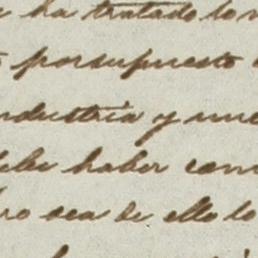 ha tratado lo
por supuesto
industria y
debe haber
ro sea de ello lo